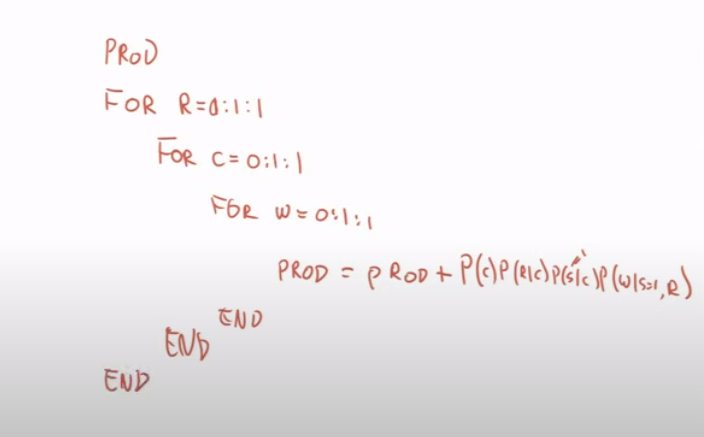 PROD
FOR R=0:1:1
FOR C=0:1:1
FOR W=0:1:1
PROD = PROD + P(C)P(R|C)P(S|C)P(W|S=1,R)
END
END
END